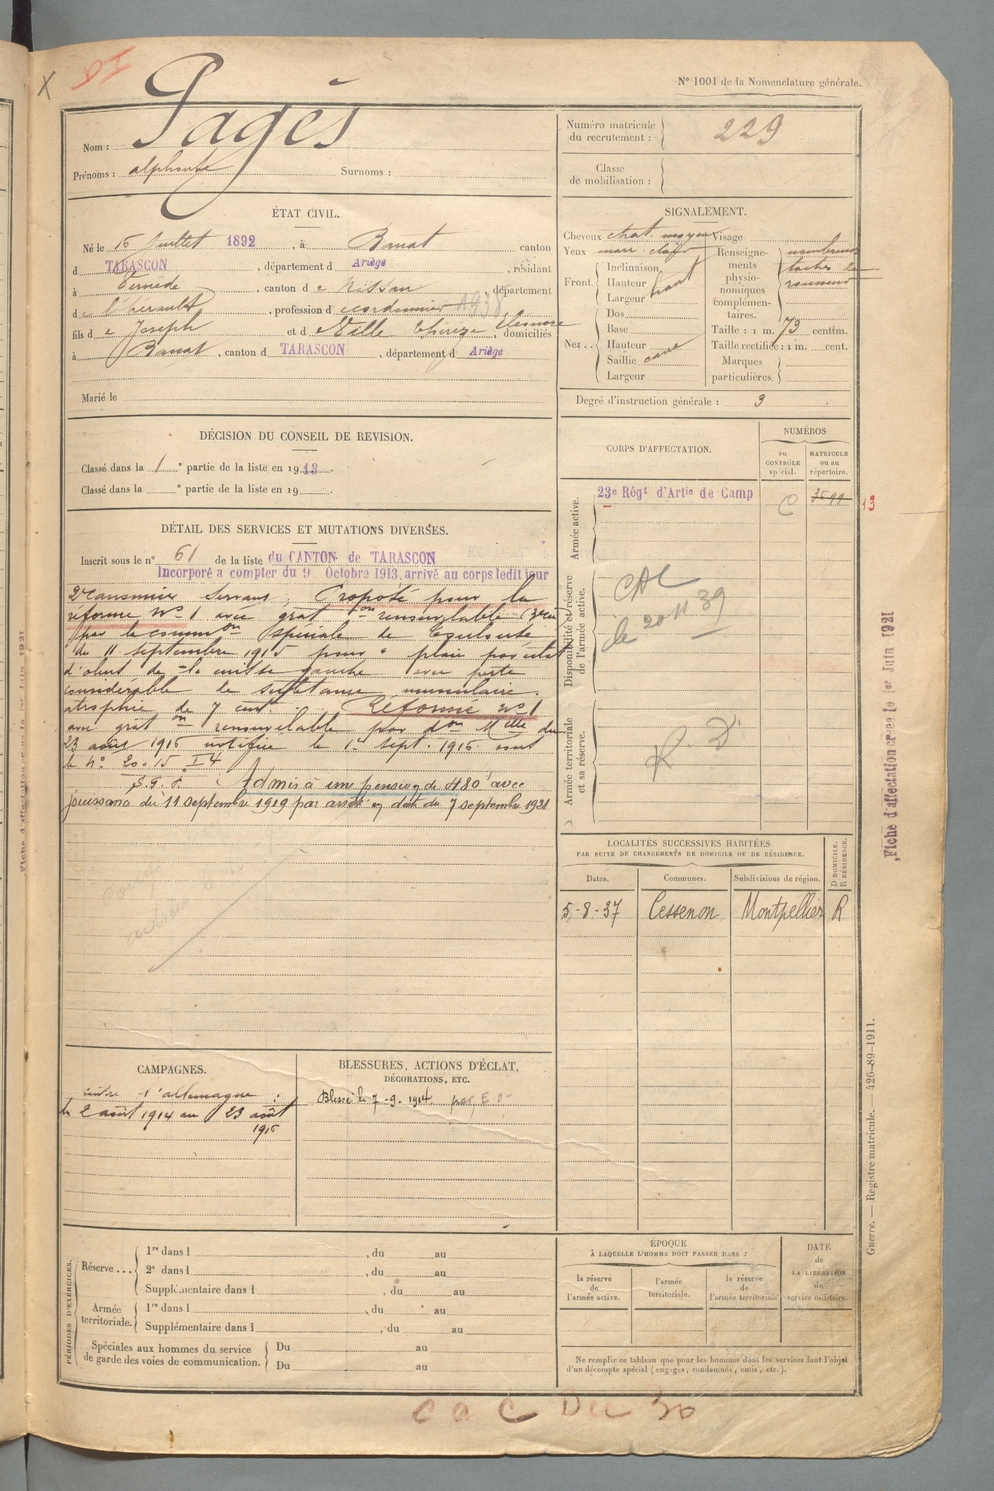 N° 1001 de la Nomenclature générale.
Nom : Pagès
Prénoms : alphonse Surnoms :
Numéro matricule du recrutement : 229
Classe de mobilisation :
ÉTAT CIVIL.
Né le 16 Juillet 1892, à Banat, canton
d TARASCON, département d Ariège, résidant
à Vernède, canton d e Nissan, département
d e l'hérault, profession d cordonnier
fils d e Joseph et d e Ville thérèze Eleonore, domiciliés
à Banat, canton d TARASCON, département d Ariège
Marié le
SIGNALEMENT.
Cheveux chat. moyen Visage
Yeux marr. clair
Front. Inclinaison
Hauteur haut
Largeur
Nez... Dos
Base
Hauteur
Saillie cave
Largeur
Renseignements physionomiques complémentaires. nombreuses taches de rousseur
Taille : 1 m. 73 centim.
Taille rectifiée : 1 m. cent.
Marques particulières.
Degré d'instruction générale : 3
DÉCISION DU CONSEIL DE REVISION.
Classé dans la 1 e partie de la liste en 1913.
Classé dans la e partie de la liste en 19
DÉTAIL DES SERVICES ET MUTATIONS DIVERSES.
Inscrit sous le n° 61 de la liste du CANTON de TARASCON
Incorporé a compter du 9 Octobre 1913, arrivé au corps ledit jour
2e canonnier servant. Proposé pour la
réforme n° 1 avec grat on renouvelable
par la comm on spéciale de Toulouse
du 11 septembre 1915 pour " plaie par éclat
d'obus de la cuisse gauche avec perte
considérable de substance musculaire.
atrophie de 7 cent. Réformé n° 1
avec grat on renouvelable par d on M elle du
23 août 1916 notifiée le 1er sept. 1916 sous
le n° 20.15 I 4
Admis à une pension de 480 avec
jouissance du 11 septembre 1919 par arrêté en date du 7 septembre 1921
CORPS D'AFFECTATION.
NUMÉROS
au CONTRÔLE spécial.
MATRICULE ou au répertoire.
Armée active.
23e Régt d'Artie de Camp
13
Disponibilité et réserve de l'armée active.
CAC
le 20 11 39
Armée territoriale et sa réserve.
R. D.
Fiche d'affectation créée le 1er Juin 1921
LOCALITÉS SUCCESSIVES HABITÉES
PAR SUITE DE CHANGEMENTS DE DOMICILE OU DE RÉSIDENCE.
Dates. Communes. Subdivisions de région. D DOMICILE. R RÉSIDENCE.
5-8-37 Cessenon Montpellier R
CAMPAGNES.
contre l'allemagne :
du 2 août 1914 au 23 août
1916
BLESSURES, ACTIONS D'ÉCLAT,
DÉCORATIONS, ETC.
Blessé le 7-9-1914. par E. O.
PÉRIODES D'EXERCICES.
Réserve... 1re dans l , du au
2e dans l , du au
Supplémentaire dans l , du au
Armée territoriale. 1re dans l , du au
Supplémentaire dans l , du au
Spéciales aux hommes du service de garde des voies de communication. Du au
Du au
ÉPOQUE
À LAQUELLE L'HOMME DOIT PASSER DANS :
la réserve de l'armée active.
l'armée territoriale.
la réserve de l'armée territoriale
DATE de LA LIBÉRATION du service militaire.
Ne remplir ce tableau que pour les hommes dont les services font l'objet
d'un décompte spécial (engagés, condamnés, omis, etc.).
Guerre. — Registre matricule. — 426-89-1911.
C a C Dec 30